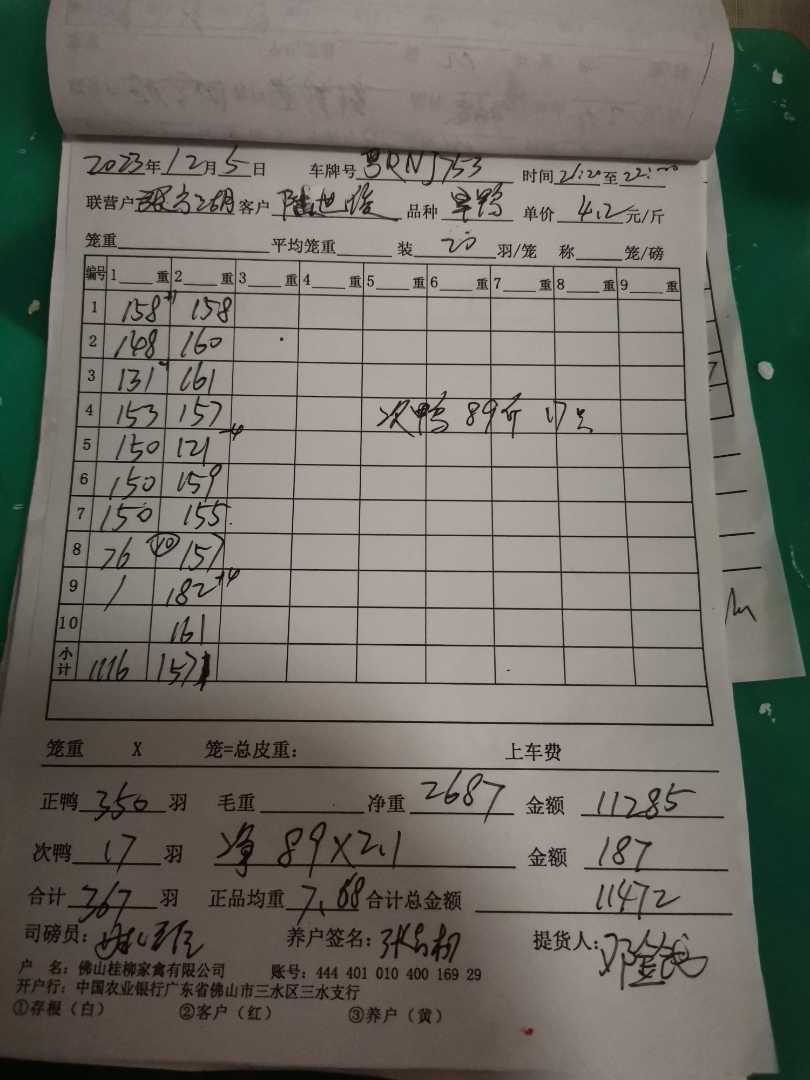 2023年12月5日 车牌号粤RNJ753 时间21:20至22:00
联营户 客户陆世 品种旱鸭 单价4.2元/斤
笼重 平均笼重 装20羽/笼 称 笼/磅
编号 1 重 2 重 3 重 4 重 5 重 6 重 7 重 8 重 9 重
1 158+1 158
2 148 160
3 131 161
4 153 157 次鸭 89斤 17只
5 150 121-4
6 150 159
7 150 155
8 76 (10) 157
9 / 182+4
10 161
小计 1116 1571
笼重 X 笼=总皮重: 上车费
正鸭350羽 毛重 净重2687 金额11285
次鸭17羽 净 89X2.1 金额187
合计367羽 正品均重7.68 合计总金额 11472
司磅员: 养户签名: 提货人:
户 名: 佛山桂柳家禽有限公司 账号: 444 401 010 400 169 29
开户行: 中国农业银行广东省佛山市三水区三水支行
①存根（白） ②客户（红） ③养户（黄）